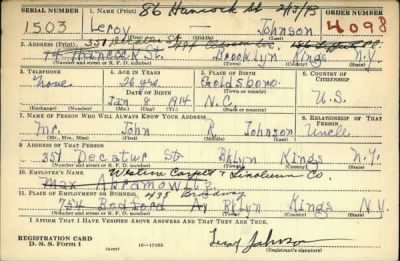 86 Hancock St 2/3/43
SERIAL NUMBER 1. NAME (Print) ORDER NUMBER
1503 Leroy Johnson 4098
(First) (Middle) (Last)
2. ADDRESS (Print) 351
74 Hancock St. Brooklyn Kings N.Y.
(Number and street or R. F. D. number) (Town) (County) (State)
3. TELEPHONE 4. AGE IN YEARS 5. PLACE OF BIRTH 6. COUNTRY OF CITIZENSHIP
None 26 yrs. Goldsboro
DATE OF BIRTH (Town or county)
Jan 8 1914 N.C. U.S.
(Exchange) (Number) (Mo.) (Day) (Yr.) (State or country)
7. NAME OF PERSON WHO WILL ALWAYS KNOW YOUR ADDRESS 8. RELATIONSHIP OF THAT PERSON
Mr. John R. Johnson Uncle
(Mr., Mrs., Miss) (First) (Middle) (Last)
9. ADDRESS OF THAT PERSON
351 Decatur St. Bklyn Kings N.Y.
(Number and street or R. F. D. number) (Town) (County) (State)
10. EMPLOYER'S NAME Western Carpet & Linoleum Co.
Max Abramowitz
11. PLACE OF EMPLOYMENT OR BUSINESS 495 Broadway
754 Bedford Av Bklyn Kings N.Y.
(Number and street or R. F. D. number) (Town) (County) (State)
I AFFIRM THAT I HAVE VERIFIED ABOVE ANSWERS AND THAT THEY ARE TRUE.
REGISTRATION CARD
D. S. S. Form 1 Leroy Johnson
(Registrant's signature)